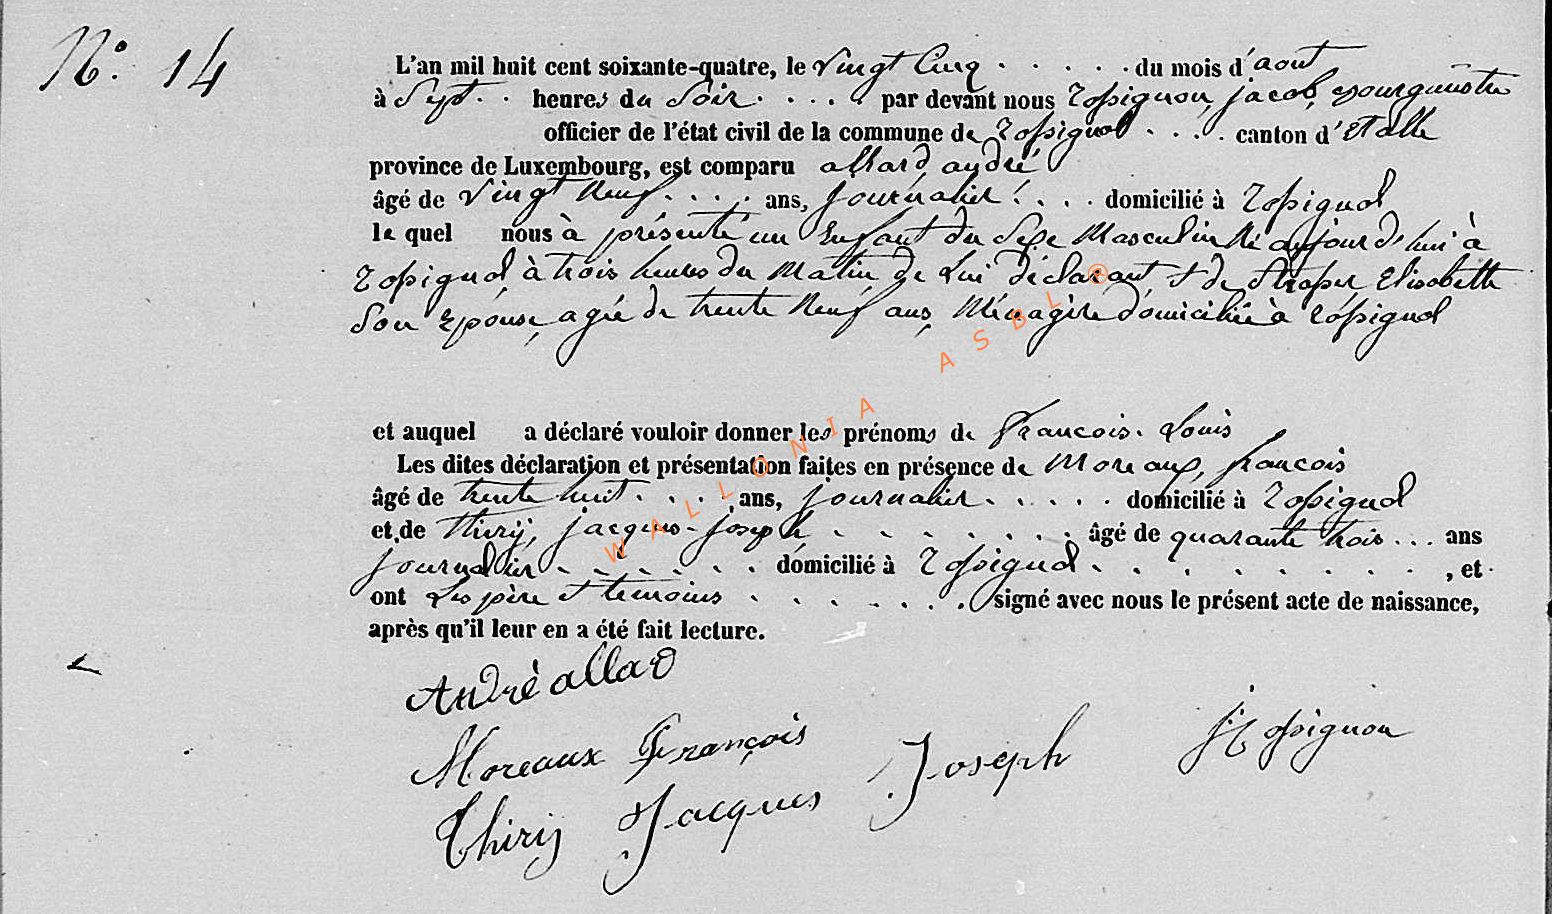 N° 14
L'an mil huit cent soixante-quatre, le vingt Cinq . . . . . du mois d'aout
à Sept . . heures du Soir . . . . . par devant nous Rossignon, jacob, Bourguéstre
officier de l'état civil de la commune de Rossignol . . . . canton d'Etalle
province de Luxembourg, est comparu allard, andré
âgé de vingt Neuf . . . . ans, journalier . . . . domicilié à Rossignol
le quel nous à présenté un Enfant du Sexe Masculin Né aujourd'hui à
Rossignol, à trois heures du Matin, de Lui déclarant, et de Elisabette
Son Epouse, agée de trente Neuf ans, Ménagère domiciliée à Rossignol
et auquel a déclaré vouloir donner les prénoms de Francois. Louis
Les dites déclaration et présentation faites en présence de Moreaux, francois
âgé de trente huit . . . . ans, journalier . . . . . domicilié à Rossignol
et de thiry, jacques-joseph . . . . . . . âgé de quarante trois . . . ans
journalier . . . . . . domicilié à Rossignol . . . . . . . . . , et
ont Les père et temoins . . . . . . . signé avec nous le présent acte de naissance,
après qu'il leur en a été fait lecture.
André allard
Moreaux François
Thiry Jacques Joseph
J Rossignon
WALLONIA ASBL ®